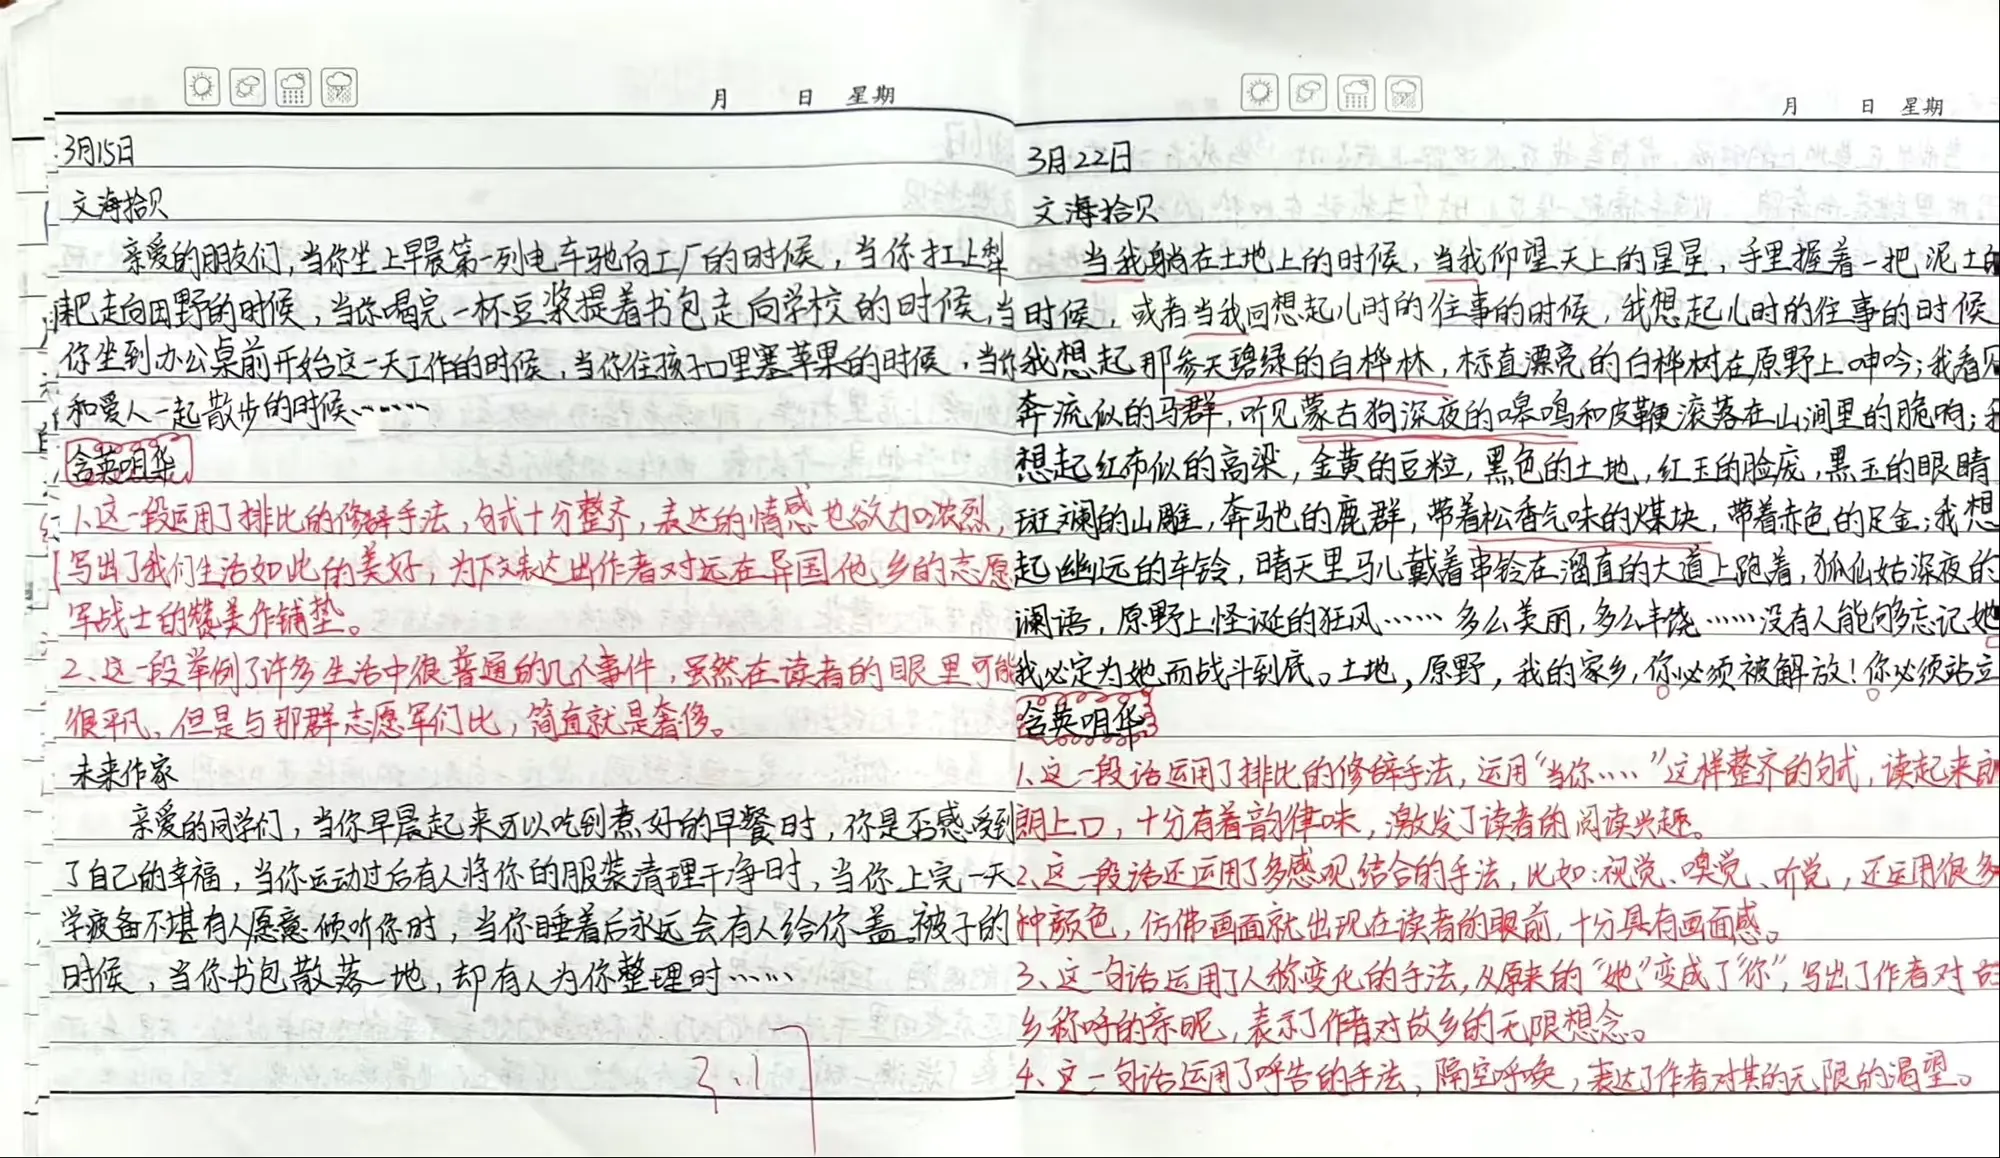 月 日 星期
3月15日
文海拾贝
亲爱的朋友们,当你坐上早晨第一列电车驰向工厂的时候,当你扛上犁
耙走向田野的时候,当你喝完一杯豆浆提着书包走向学校的时候,当
你坐到办公桌前开始这一天工作的时候,当你往孩子口里塞苹果的时候,当你
和爱人一起散步的时候……
含英咀华
1、这一段运用了排比的修辞手法,句式十分整齐,表达的情感也欲加浓烈,
写出了我们生活如此的美好,为下文表达出作者对远在异国他乡的志愿
军战士的赞美作铺垫。
2、这一段举例了许多生活中很普通的几个事件,虽然在读者的眼里可能
很平凡,但是与那群志愿军们比,简直就是奢侈。
未来作家
亲爱的同学们,当你早晨起来可以吃到煮好的早餐时,你是否感受到
了自己的幸福,当你运动过后有人将你的服装清理干净时,当你上完一天
学疲备不堪有人愿意倾听你时,当你睡着后永远会有人给你盖被子的
时候,当你书包散落一地,却有人为你整理时……
3.17
月 日 星期
3月22日
文海拾贝
当我躺在土地上的时候,当我仰望天上的星星,手里握着一把泥土的
时候,或者当我回想起儿时的往事的时候,我想起儿时的往事的时候
我想起那参天碧绿的白桦林,标直漂亮的白桦树在原野上呻吟;我看见
奔流似的马群,听见蒙古狗深夜的嗥鸣和皮鞭滚落在山涧里的脆响;我
想起红布似的高梁,金黄的豆粒,黑色的土地,红玉的脸庞,黑玉的眼睛
斑斓的山雕,奔驰的鹿群,带着松香气味的煤块,带着赤色的足金;我想
起幽远的车铃,晴天里马儿戴着串铃在溜直的大道上跑着,狐仙姑深夜的
谰语,原野上怪诞的狂风……多么美丽,多么丰饶……没有人能够忘记她
我必定为她而战斗到底。土地,原野,我的家乡,你必须被解放!你必须站立
含英咀华
1、这一段话运用了排比的修辞手法,运用“当你……”这样整齐的句式,读起来朗
朗上口,十分有着韵律味,激发了读者的阅读兴趣。
2、这一段话还运用了多感观结合的手法,比如:视觉、嗅觉、听觉,还运用很多
种颜色,仿佛画面就出现在读者的眼前,十分具有画面感。
3、这一句话运用了人称变化的手法,从原来的“她”变成了“你”,写出了作者对故
乡称呼的亲昵,表示了作者对故乡的无限想念。
4、这一句话运用了呼告的手法,隔空呼唤,表达了作者对其的无限的渴望。